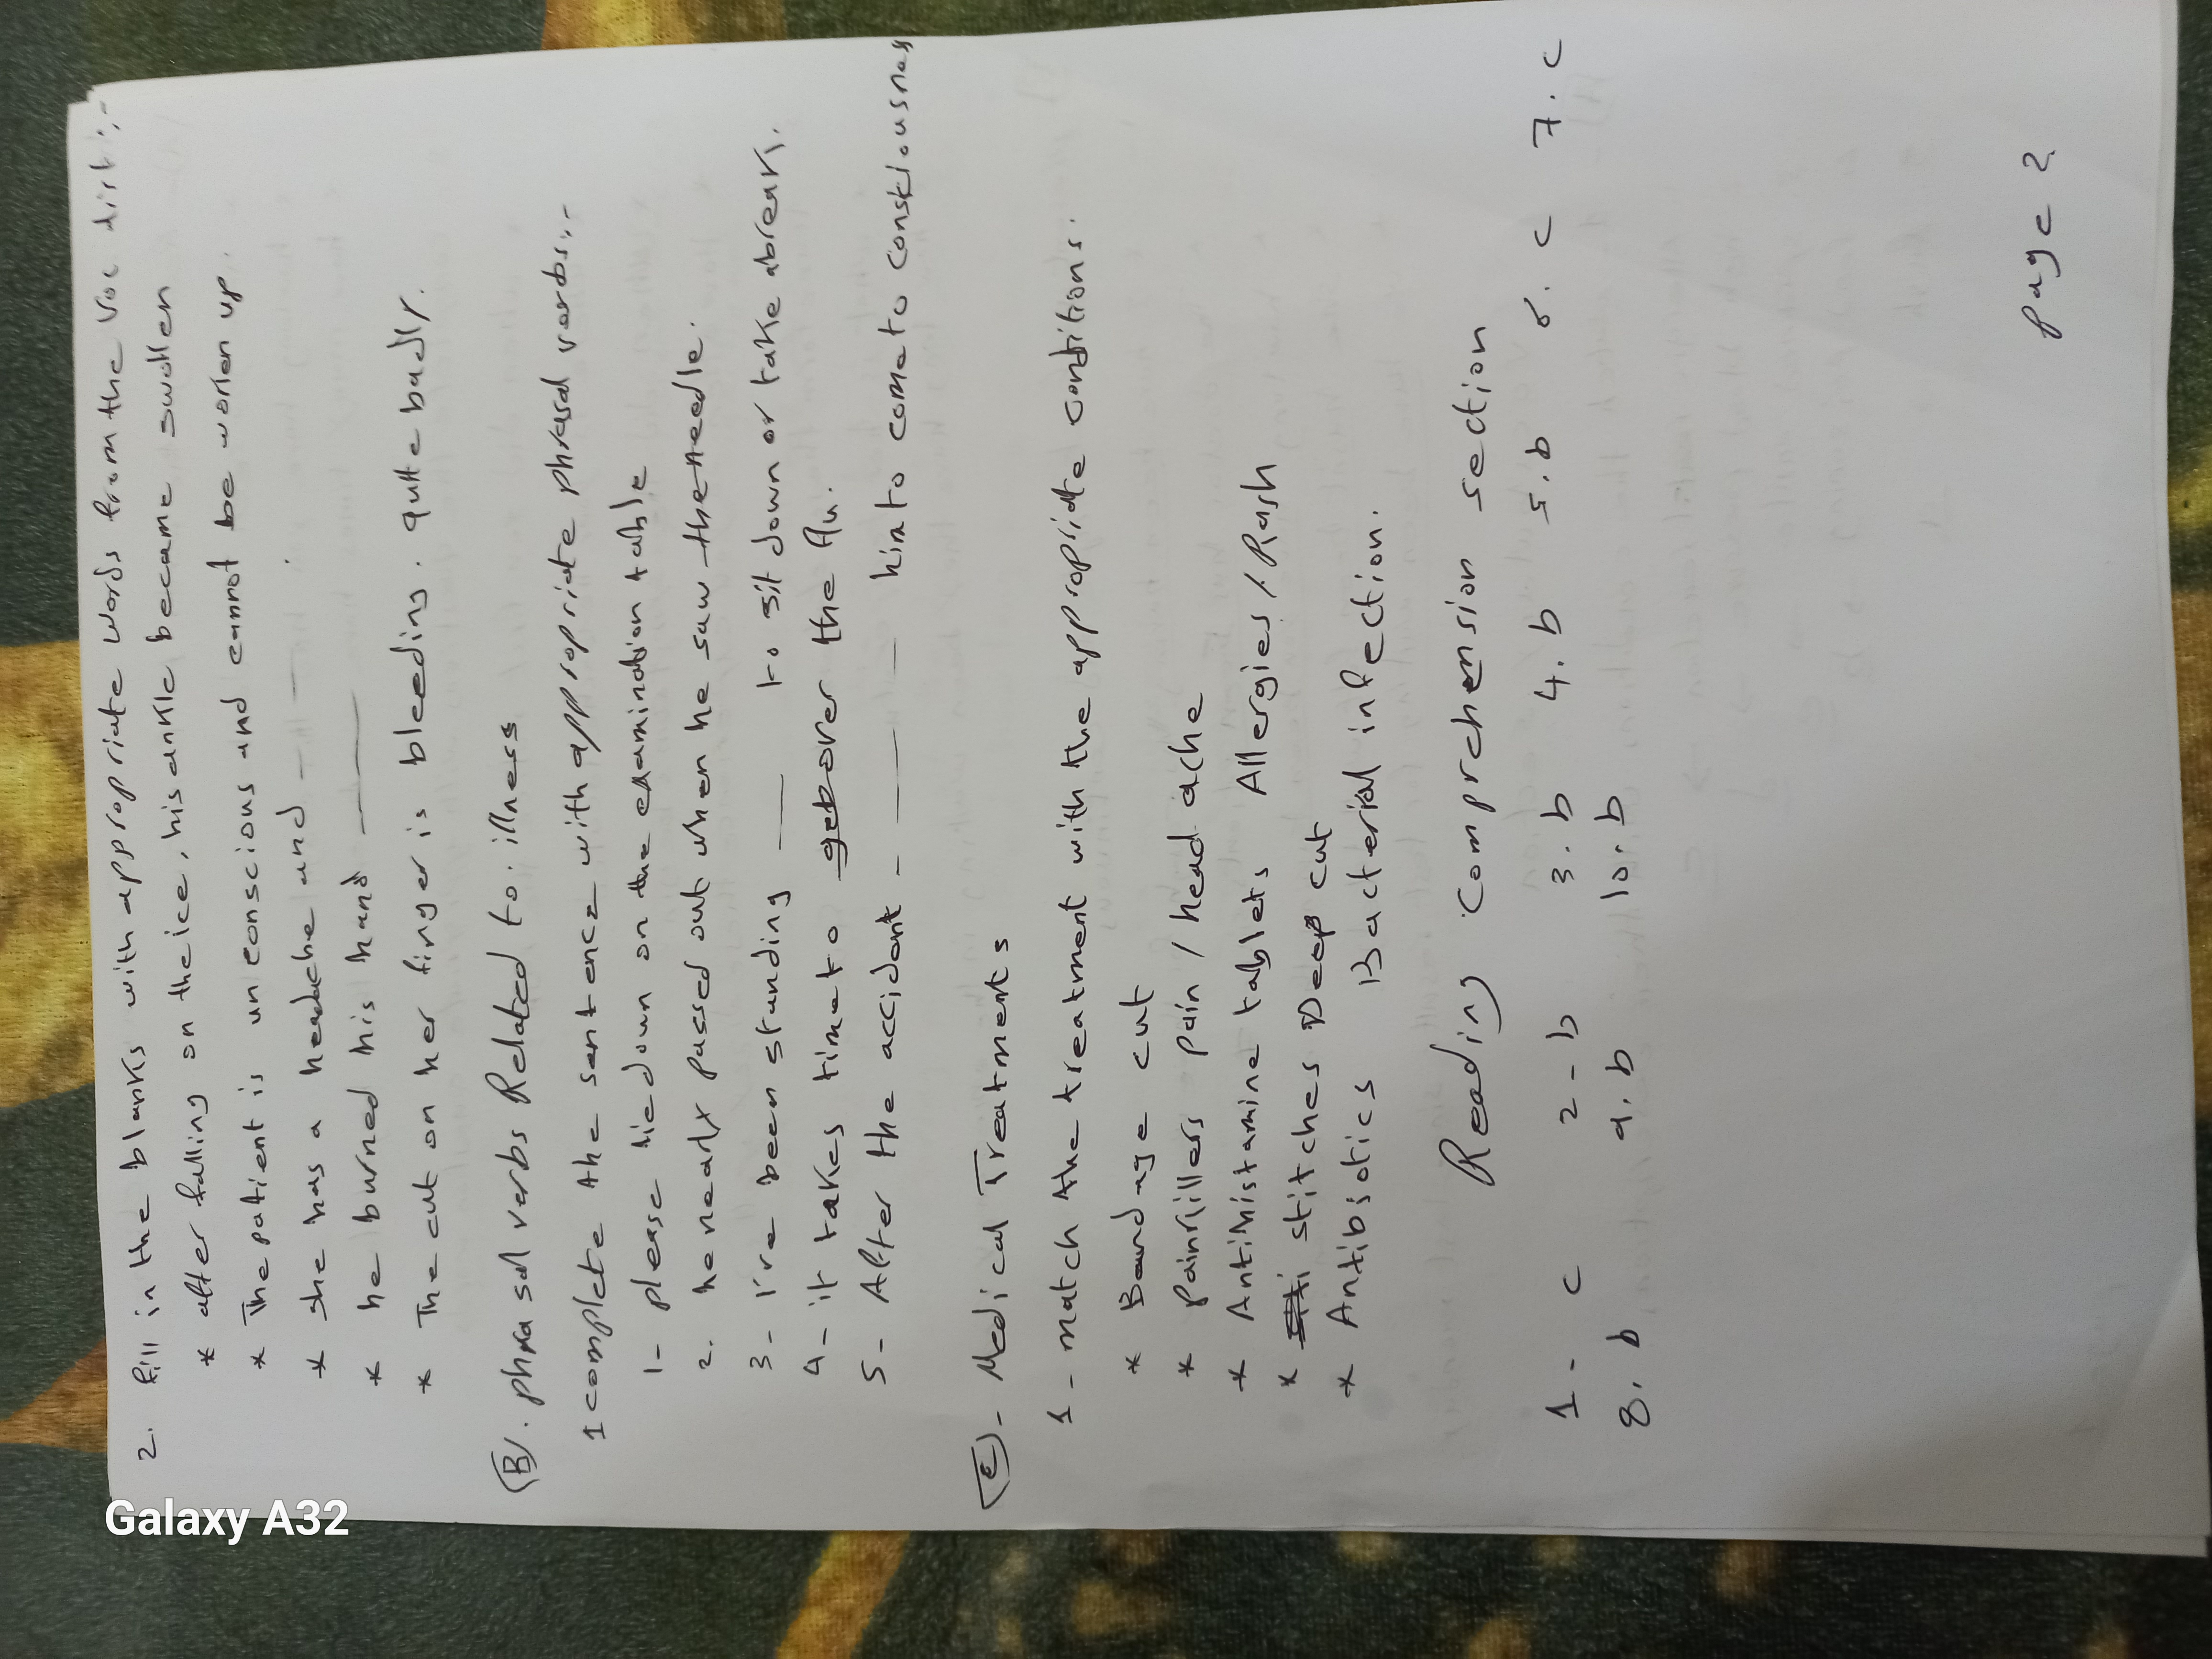 2. fill in the blanks with appropriate words from the voc list:-
* after falling on the ice, his ankle became swollen
* The patient is unconscious and cannot be woken up.
* she has a headache and
* he burned his hand
* The cut on her finger is bleeding. quite badly.
(B). phrasal verbs Related to: illness
1 complete the sentence with appropriate phrasal verbs.-
1- please lie down on the examination table
2. he nearly passed out when he saw the needle.
3- I've been standing to sit down or take a break.
4- it takes time to get over the flu.
5- After the accident him to come to consklousnes
(C)- Medical Treatments
1 - match the treatment with the appropriate conditions.
* Bandage cut
* painkillers pain / head ache
* Antihistamine tablets Allergies / Rash
* stitches Deep cut
* Antibiotics Bacterial infection.
Reading Comprehension section
1- c 2-b 3.b 4.b 5.b 6. c 7. c
8. b 9. b 10. b
page 2
Galaxy A32